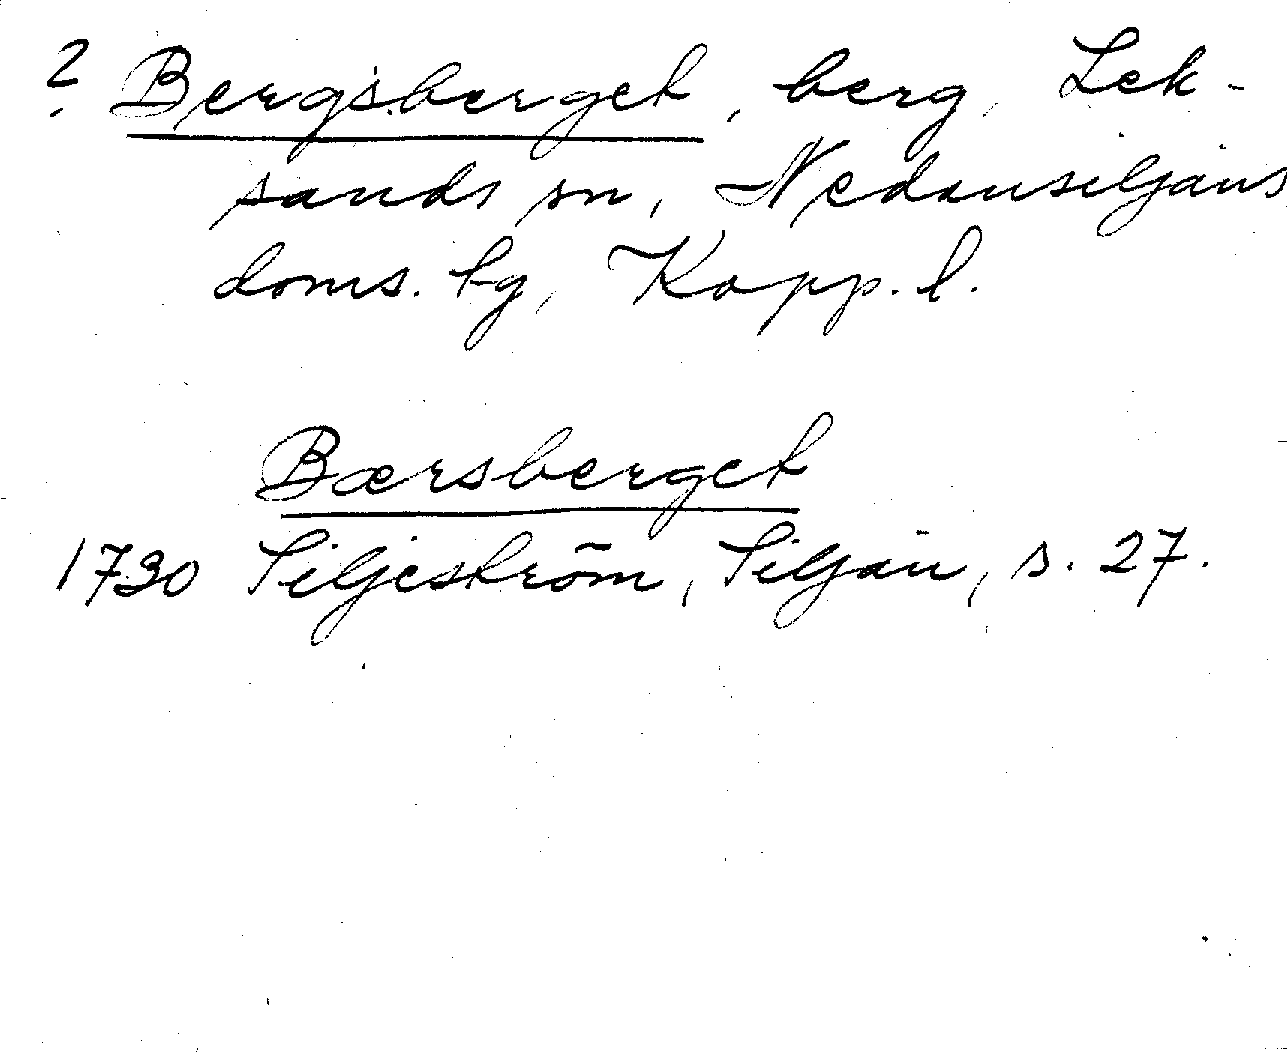 ? Bergsberget, berg, Lek-
sands sn, Nedansiljans
doms. tg, Kopp. l.
Bærsberget
1730 Siljeström, Siljan, s. 27.